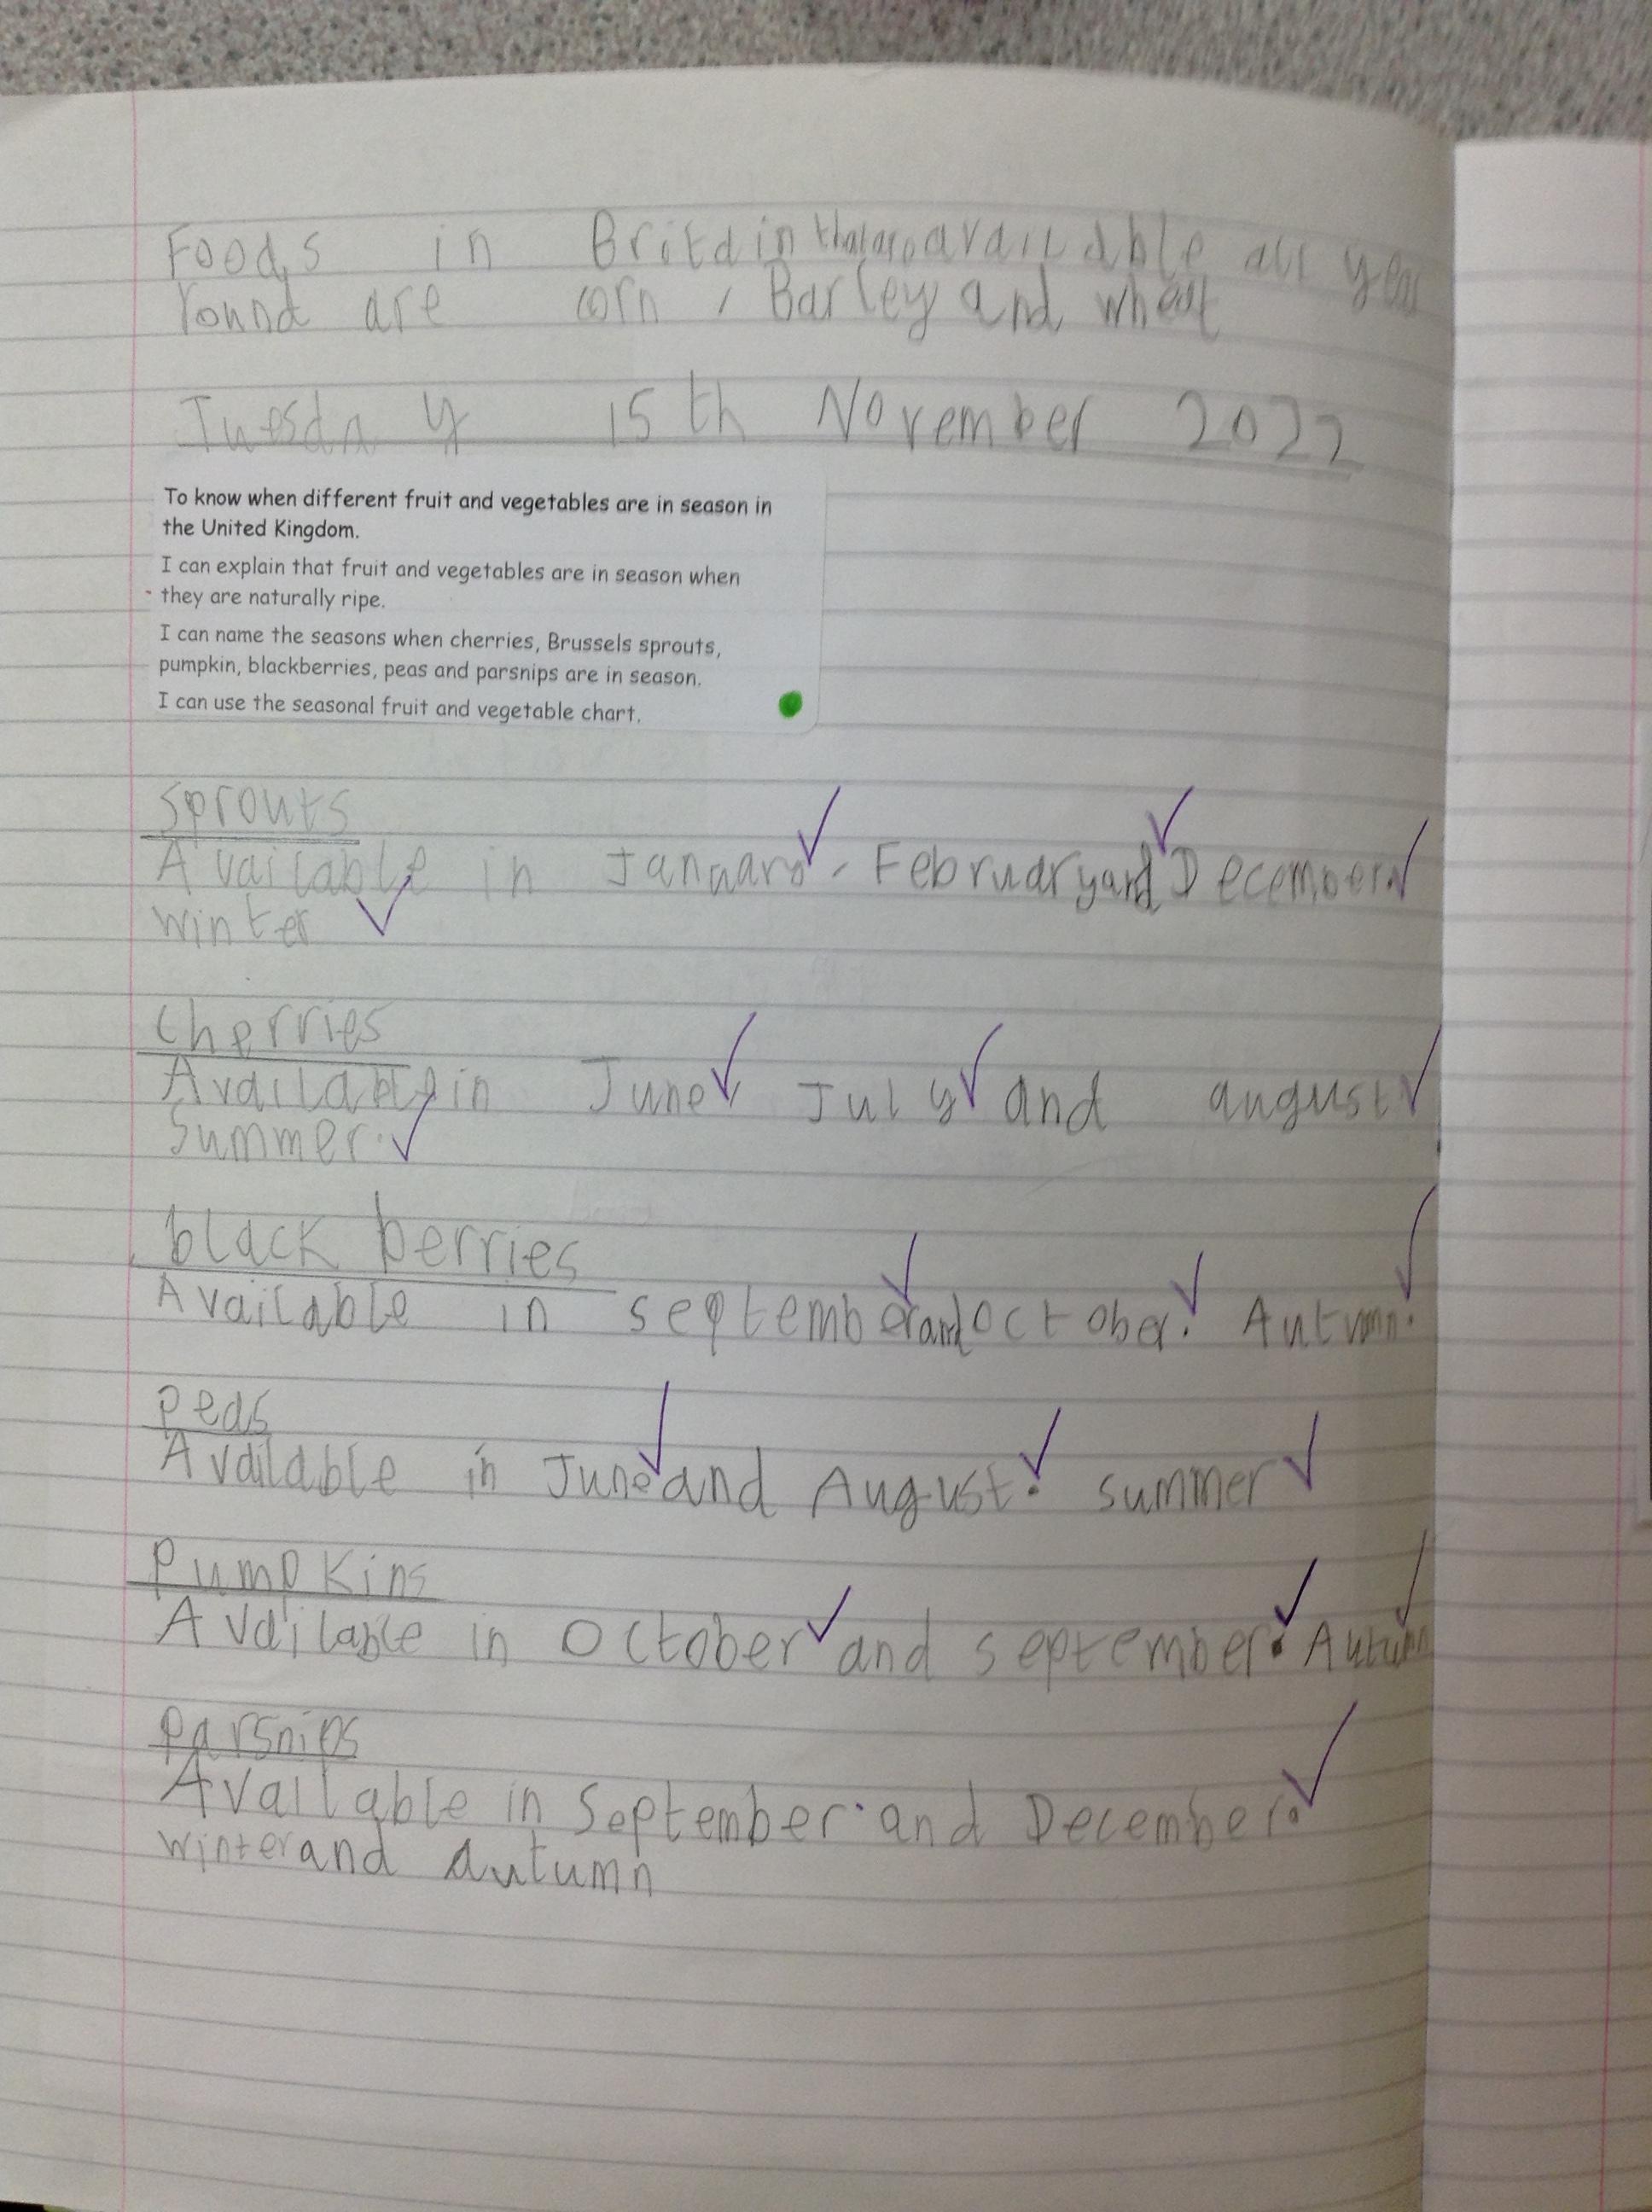 Foods in Britain that are available all year
round are corn, Barley and wheat
Tuesday 15th November 2022
To know when different fruit and vegetables are in season in
the United Kingdom.
I can explain that fruit and vegetables are in season when
they are naturally ripe.
I can name the seasons when cherries, Brussels sprouts,
pumpkin, blackberries, peas and parsnips are in season.
I can use the seasonal fruit and vegetable chart.
Sprouts
Available in January, February and December.
winter
Cherries
Available in June, July and august
Summer.
black berries
Available in september and october. Autumn.
peas
Available in June and August. summer
Pumpkins
Available in October and september. Autumn
parsnips
Available in September and December.
winter and autumn